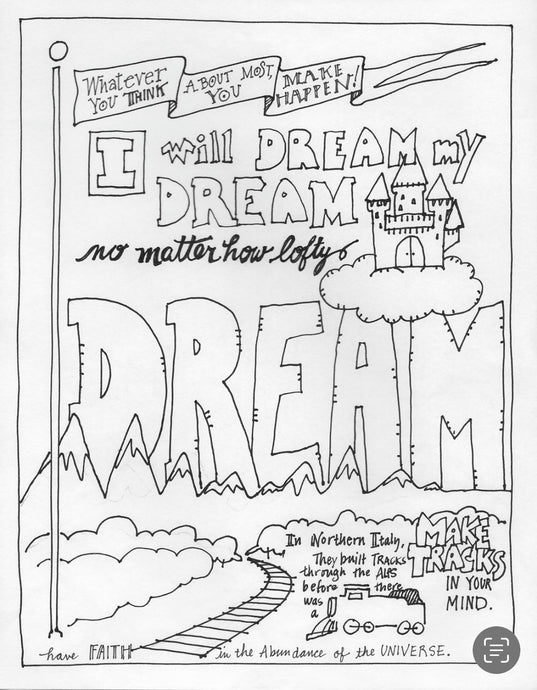 Whatever
YOU THINK
ABOUT MOST,
YOU
MAKE
HAPPEN!
I will DREAM my
DREAM
no matter how lofty
DREAM
In Northern Italy,
They built TRACKS
through the ALPS
before there
was
a
MAKE
TRACKS
IN YOUR
MIND.
have FAITH in the Abundance of the UNIVERSE.